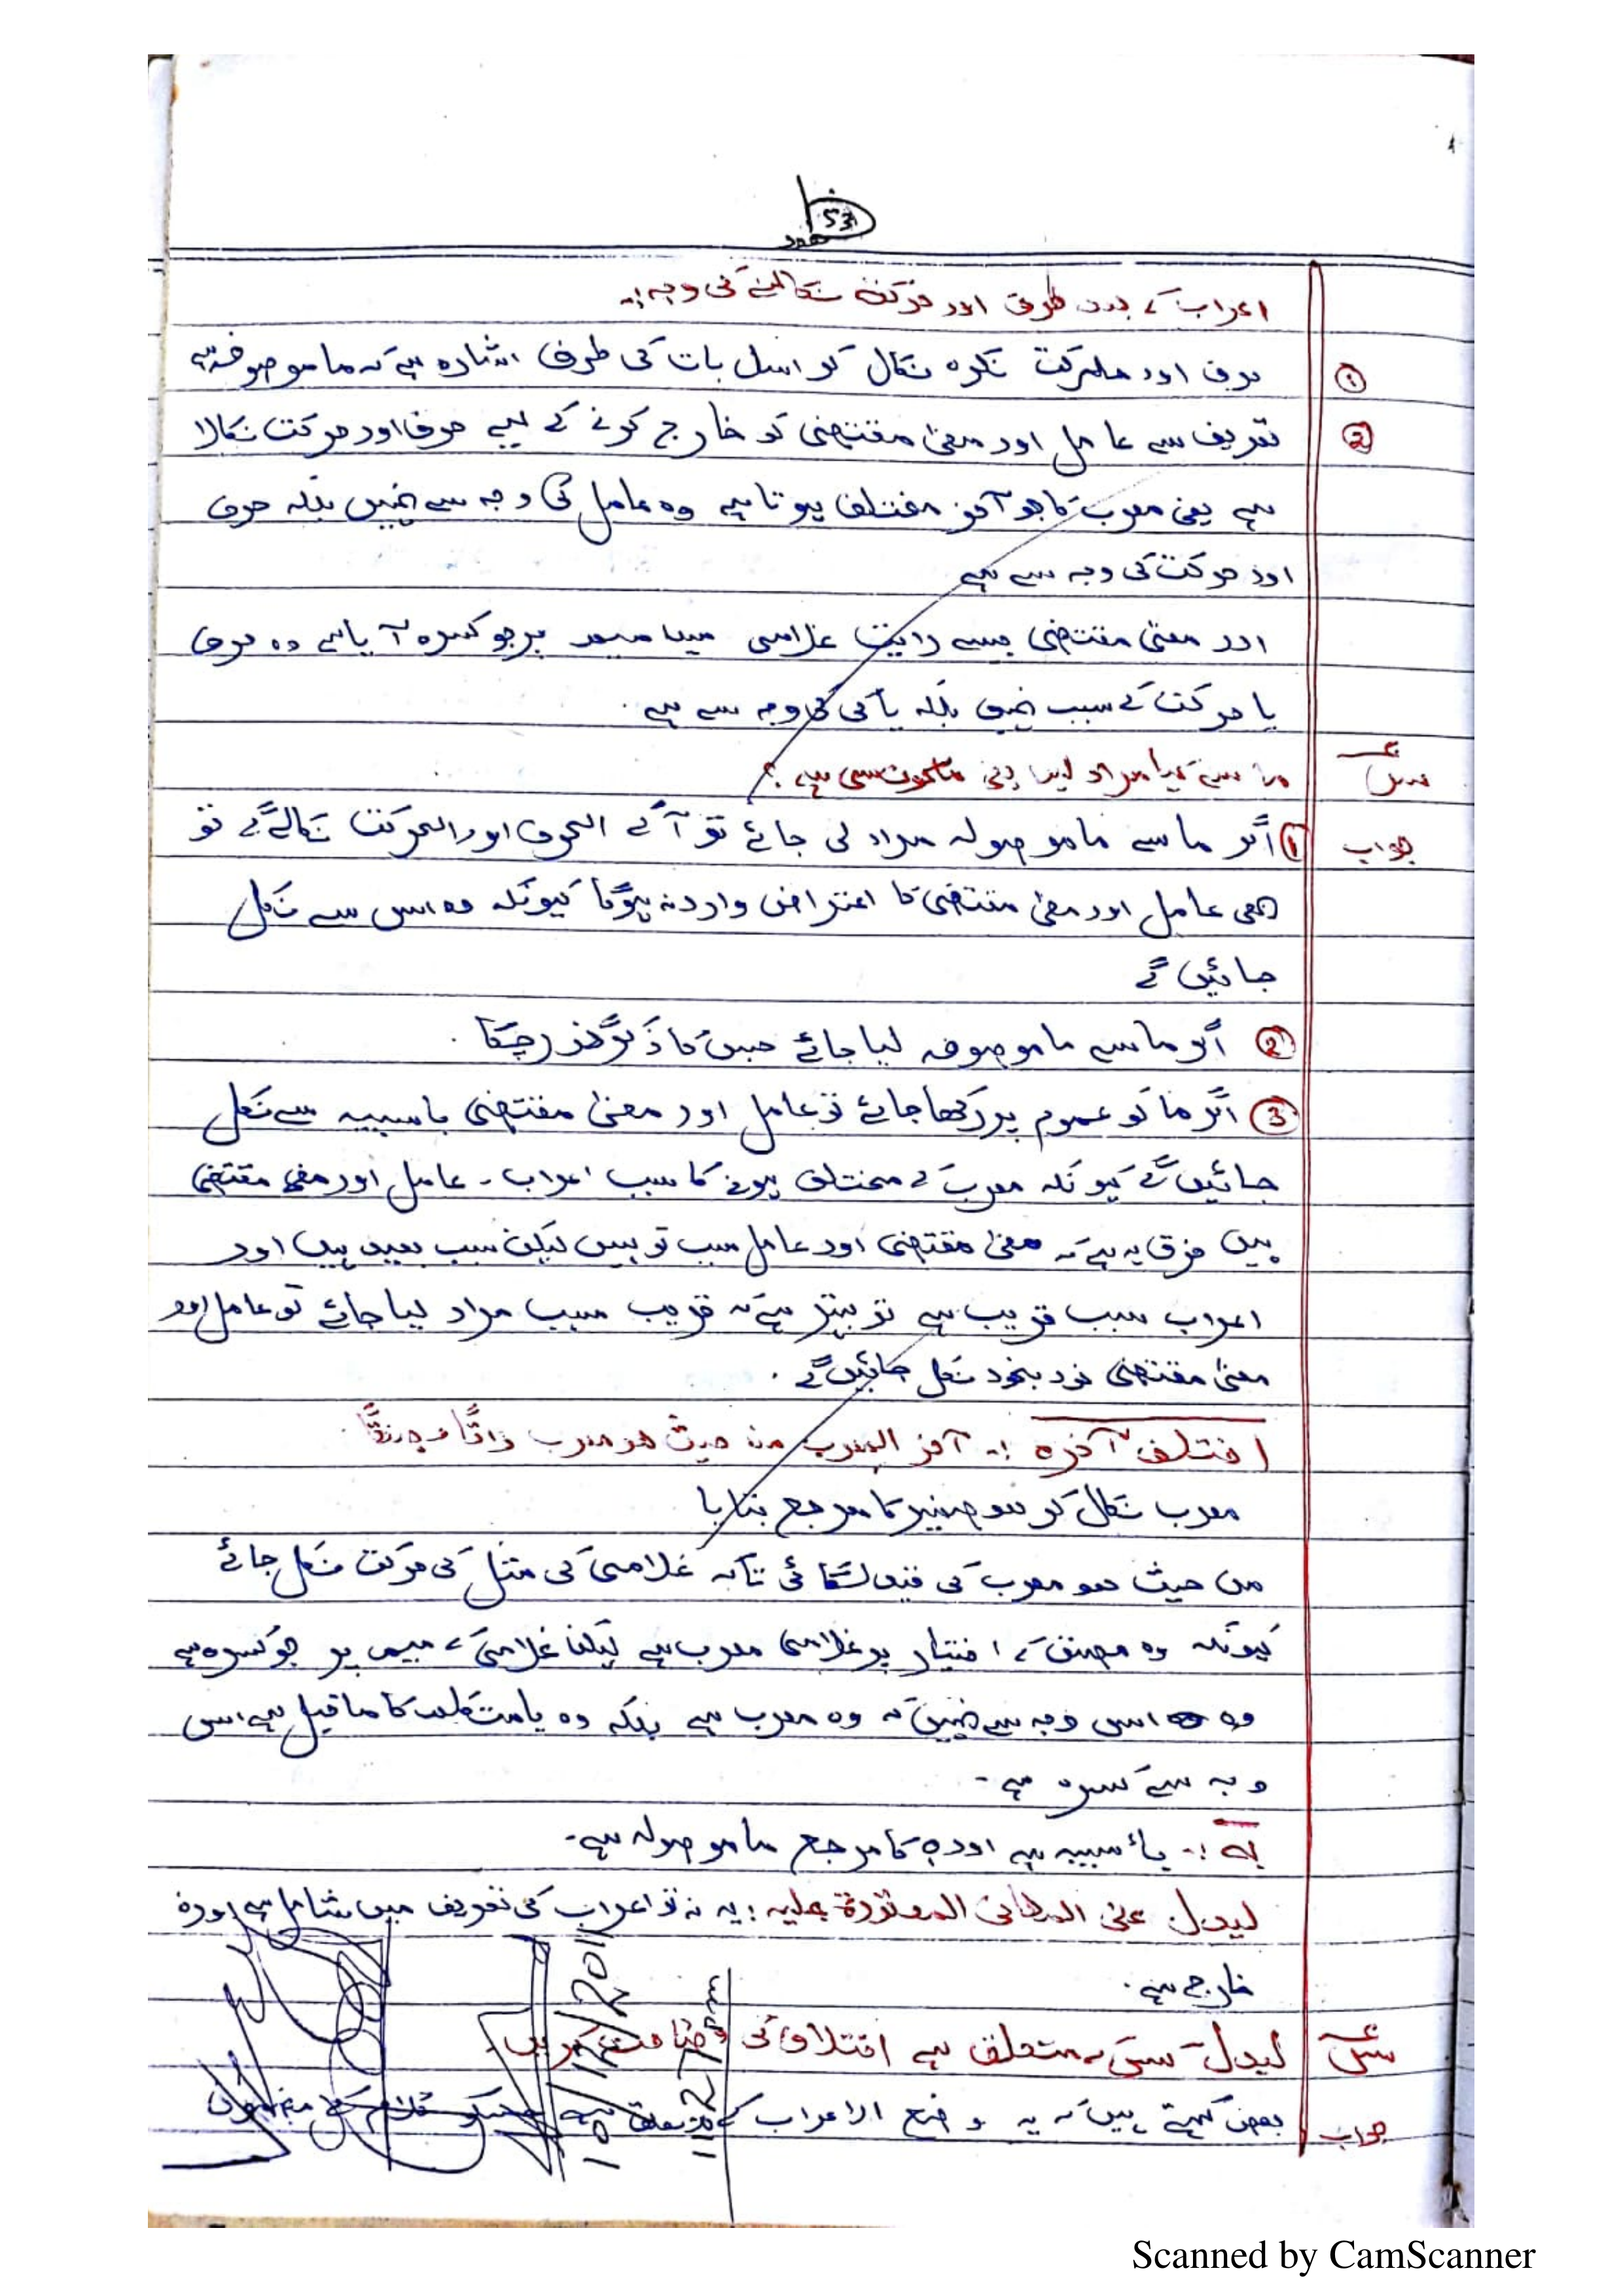 53
اعراب کے بعد حرف اور حرکت نکالنے کی وجہ :۔
① حرف اور حرکت نکرہ نکال کر اس بات کی طرف اشارہ ہے کہ ما موصوفہ ہے
② تعریف سے عامل اور معنیٰ مقتضی کو خارج کرنے کے لیے حرف اور حرکت نکالا
ہے یعنی معرب کا جو آخر مختلف ہوتا ہے وہ عامل کی وجہ سے نہیں بلکہ حرف
اور حرکت کی وجہ سے ہے
اور معنی مقتضی جیسے رایت غلامی میں میم پر جو کسرہ آیا ہے وہ حرف
یا حرکت کے سبب نہیں بلکہ یا کی وجہ سے ہے ۔
س ما سے کیا مراد لیں یعنی ما کونسی ہے ؟
جواب ① اگر ما سے ما موصولہ مراد لی جائے تو آگے الحرف اور الحرکت نکالے گے تو
بھی عامل اور معنیٰ مقتضی کا اعتراض وارد نہ ہوگا کیونکہ وہ اس سے نکل
جائیں گے
② اگر ما سے ما موصوفہ لیا جائے جس کا ذکر گذر چکا ۔
③ اگر ما کو عموم پر رکھا جائے تو عامل اور معنیٰ مقتضی با سببیہ سے نکل
جائیں گے کیونکہ معرب کے مختلف ہونے کا سبب اعراب ۔ عامل اور معنیٰ مقتضی
ہیں فرق یہ ہے کہ معنیٰ مقتضی اور عامل سبب تو ہیں لیکن سبب بعید ہیں اور
اعراب سبب قریب ہے تو بہتر ہے کہ قریب سبب مراد لیا جائے تو عامل اور
معنیٰ مقتضی خود بخود نکل جائیں گے ۔
اختلف آخرہ :۔ آخر المعرب من حیث ھو معرب ذاتًا او صفتًا
معرب نکال کر ھو ضمیر کا مرجع بتایا
من حیث ھو معرب کی قید لگائی تاکہ غلامی کی مثل کی حرکت نکل جائے
کیونکہ وہ مصنف کے اختیار پر غلامی معرب ہے لیکن غلامی کے میم پر جو کسرہ ہے
وہ اس وجہ سے نہیں کہ وہ معرب ہے بلکہ وہ یا متکلم کا ماقبل ہے اس
وجہ سے کسرہ ہے ۔
بہ :۔ بأ سببیہ ہے اور ہ کا مرجع ما موصولہ ہے ۔
لیدل علی المعانی المعتورۃ علیہ : یہ نہ تو اعراب کی تعریف میں شامل ہے اور نہ
خارج ہے ۔
س لیدل کس کے متعلق ہے اختلاف کی وضاحت کریں ۔
جواب بعض کہتے ہیں کہ یہ وضع الاعراب کے متعلق ہے
Scanned by CamScanner